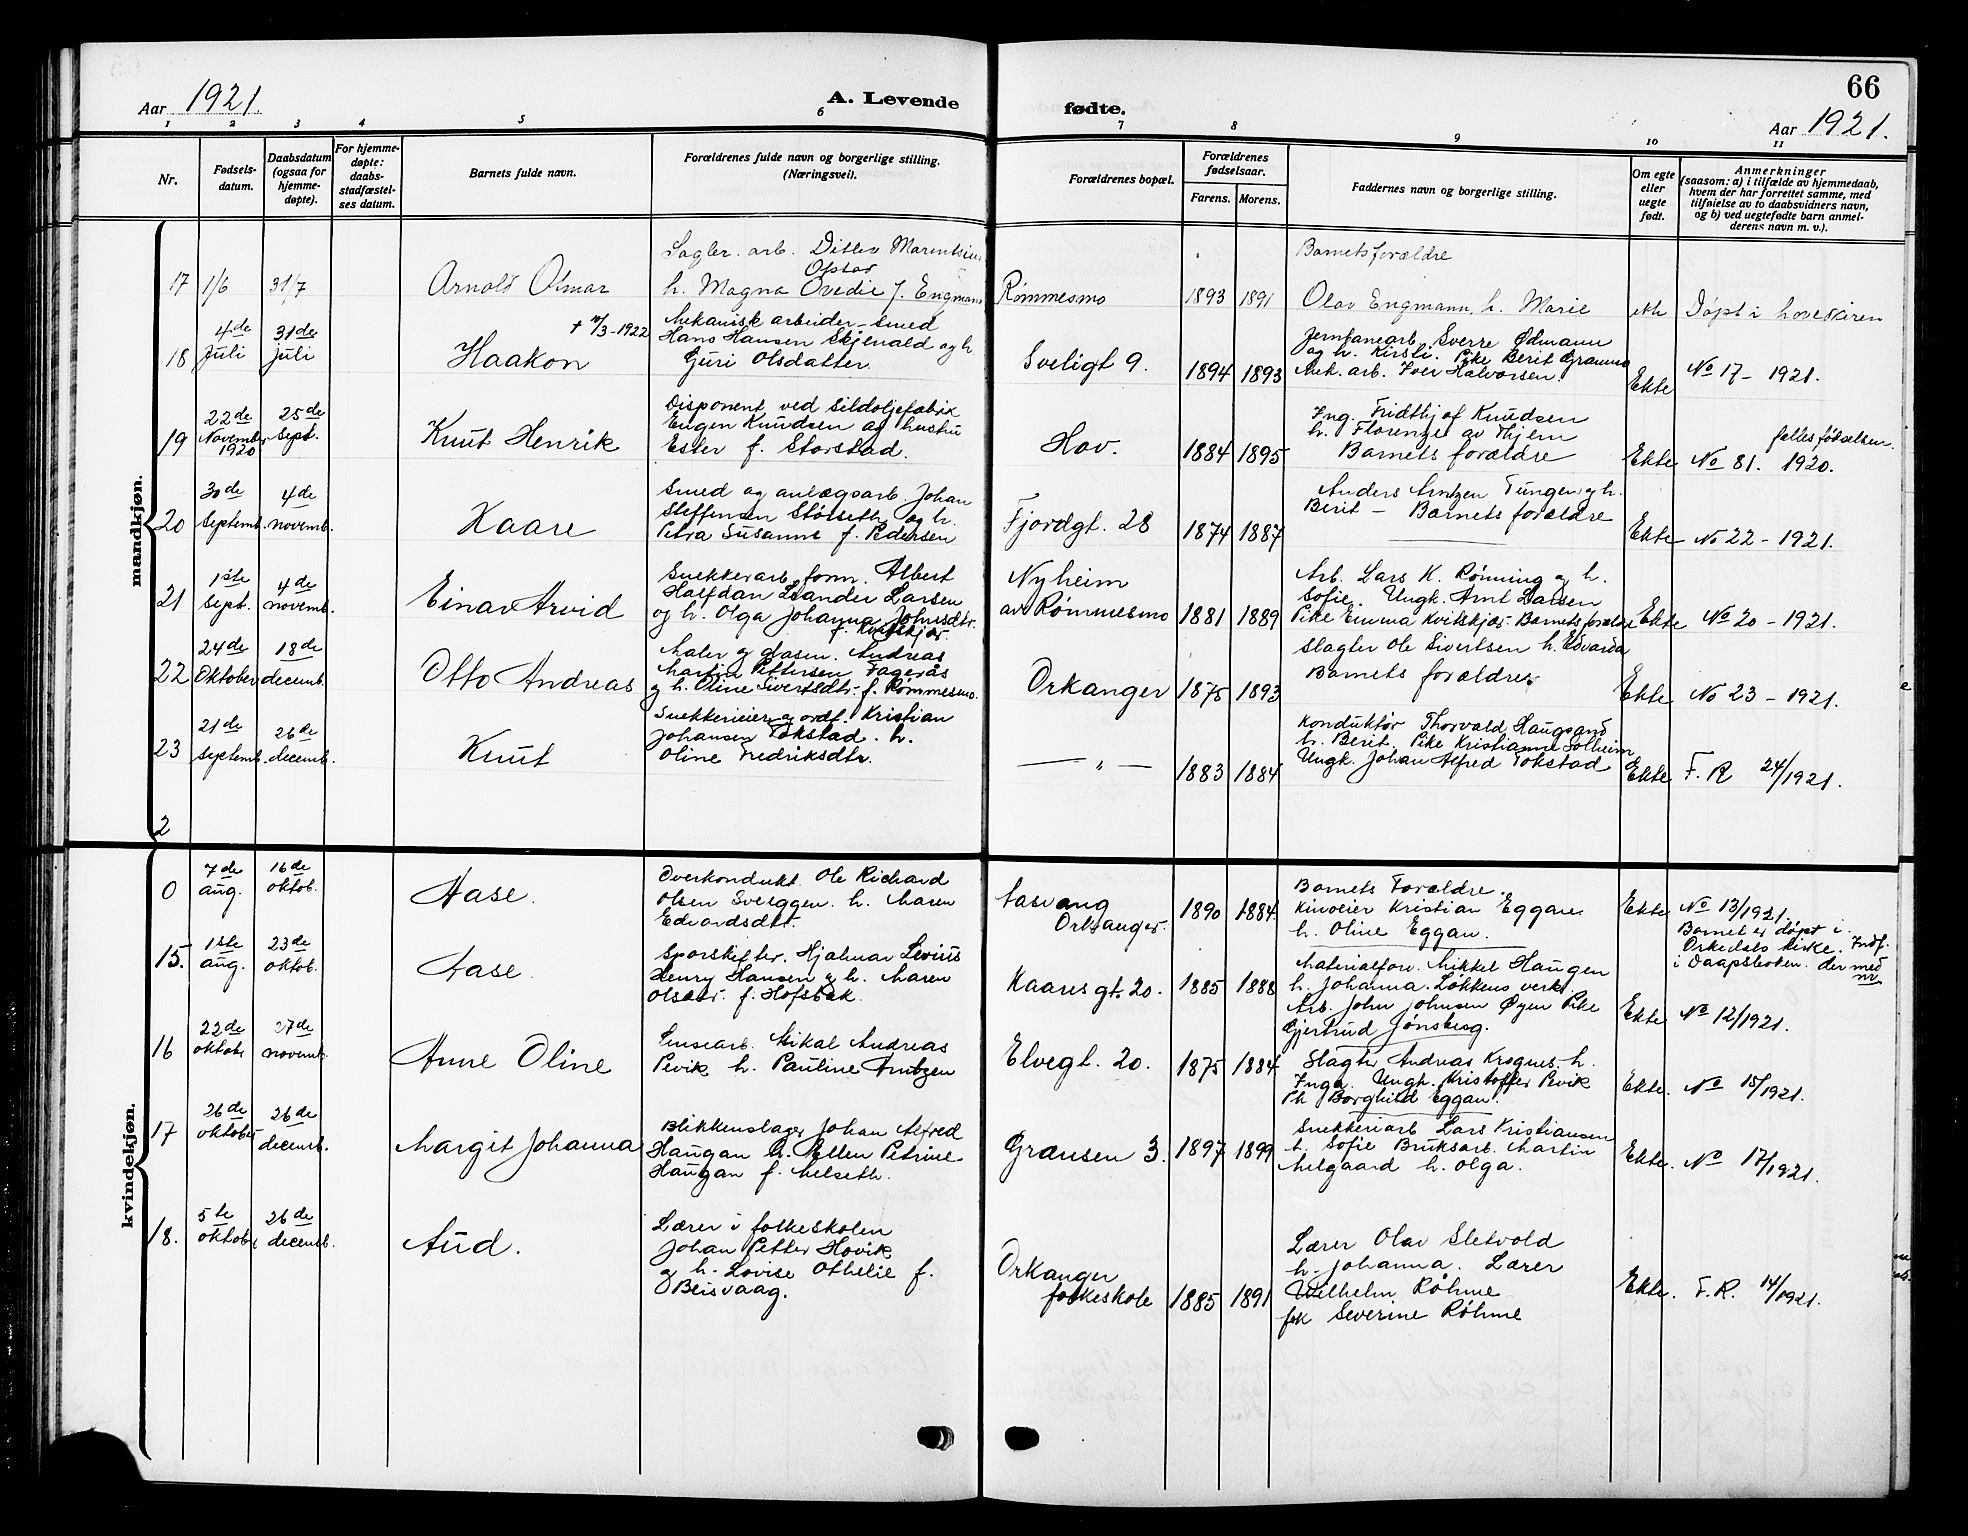 66
Aar 1921.
A. Levende
fødte.
Aar 1921.
1 2 3 4 5 6 7 8 9 10 11
Nr.
Fødsels-
datum.
Daabsdatum
(ogsaa for
hjemme-
døpte).
For hjemme-
døpte:
daabs-
stadfæstel-
ses datum.
Barnets fulde navn.
Forældrenes fulde navn og borgerlige stilling.
(Næringsvei).
Forældrenes bopæl.
Forældrenes
fødselsaar.
Farens. Morens.
Faddernes navn og borgerlige stilling.
Om egte
eller
uegte
født.
Anmerkninger
(saasom: a) i tilfælde av hjemmedaab,
hvem der har forrettet samme, med
tilføielse av to daabsvidners navn,
og b) ved uegtefødte barn anmel-
derens navn m. v.).
mandkjøn.
17 1/6 31/7
Arnold Otmar
Sagler. arb. Ditlev Marentsius
Opstad
h. Magna Ovedie f. Engmann
Rømmesmo
1893 1891
Barnets forældre
Olav Engmann, h. Marie
Døpt i
18
4de
Juli
31de
Juli
Haakon
Mekanisk arbeider - smed
Hans Hansen Skjenald og h
Guri Olsdatter
Sveligt 9.
1894 1893
Sverre Ødmann
og h. Kirsti. Pike Berit Gramno
Mek. arb. Iver Halvorsen.
Ekte
No 17 - 1921.
19
22de
Novemb.
1920
25de
Sept.
Knut Henrik
Disponent ved Sildoljefabrik
Eugen Knudsen og hustru
Ester f. Storstad.
Hov.
1884 1895
Ing. Fridthjof Knudsen
h. Florenze av Thjem
Barnets forældre
Ekte
fødselsen.
No 81. 1920.
20
30de
Septemb.
4de
novemb.
Kaare
Smed og anlægsarb. Johan
Steffensen Størseth og h.
Petra Susanne f. Pedersen
Fjordgt. 28
1874 1887
Anders Arntzen Tungen og h.
Berit - Barnets forældre
Ekte
No 22 - 1921.
21
1ste
Sept.
4de
novemb.
Einar Arvid
Snekkerarb. form. Albert
Halfdan Leander Larsen
og h. Olga Johanna Johnsdtr.
f. Kvitskjær.
Nyheim
av Rømmesmo
1881 1889
Arb. Lars K. Rønning og h.
Sofie. Ungk. Arnt Larsen
Pike Emma Kvitskjær. Barnets forældre
Ekte
No 20 - 1921.
22
24de
Oktober
18de
decemb.
Otto Andreas
Maler og glasm. Andreas
Martin Pettersen Fagerås
og h. Oline Sivertsdtr. f. Rømmesmo.
Orkanger
1875 1893
Slagter Ole Sivertsen h. Edvarda
Barnets forældre
Ekte
No 23 - 1921.
23
21de
Septemb.
26de
decemb.
Knut
Snekkerieier og ordf. Kristian
Johansen Tokstad. h.
Oline Fredriksdtr.
— " —
1883 1884
Konduktør Thorvald Haugsand
h. Berit. Pike Kristianne Solheim
Ungk. Johan Alfred Tokstad
Ekte
F. R 24/1921.
2
kvindekjøn.
0
7de
aug.
16de
oktob.
Aase.
Overkondukt. Ole Richard
Olsen Sveeggen. h. Maren
Edvardsdtr.
Aasvang
Orkanger.
1890 1884
Barnets Forældre.
Kinoeier Kristian Eggan
h. Oline Eggan.
Ekte
No 13/1921.
Barnet er døpt i
Orkedals kirke. Indf.
i Daapsboken der med
nr
15.
1ste
aug.
23de
oktob.
Aase.
Sporskifter. Hjalmar Levius
Henry Hansen og h. Maren
Olsdtr. f. Hofsbak.
Kaares gt. 20.
1885 1888
Materialforv. Mikkel Haugen
h. Johanna. Løkkens verk.
Arb. John Johnsen Øyen Pike
Gjertrud Jønsberg.
Ekte
No 12/1921.
16
22de
oktobr
27de
novemb.
Anne Oline
Linsearb. Mikal Andreas
Pevik h. Pauline Arntzen
Elvegt. 20.
1875 1884
Slagtr. Andreas Krognes. h.
Inga. Ungk. Kristoffer Pevik
Pk Borghild Eggan.
Ekte.
No 15/1921.
17
26de
oktober
26de
decemb.
Margit Johanna
Blikkenslager Johan Alfred
Haugan h. Ellen Petrine
Haugan f. Melseth.
Gransen 3.
1897 1899
Snekkeriarb. Lars Kristiansen
h. Sofie Bruksarb. Martin
Melgaard h. Olga.
Ekte.
No 17/1921.
18.
5te
oktober
26de
decemb.
Aud.
Lærer i folkeskolen
Johan Petter Hovik
og h. Lovise Othelie f.
Beisvaag.
Orkanger
folkeskole
1885 1891
Lærer Olav Sletvold
h. Johanna. Lærer
Wilhelm Røhme
frk Severine Røhme
Ekte.
F. R. 14/1921.